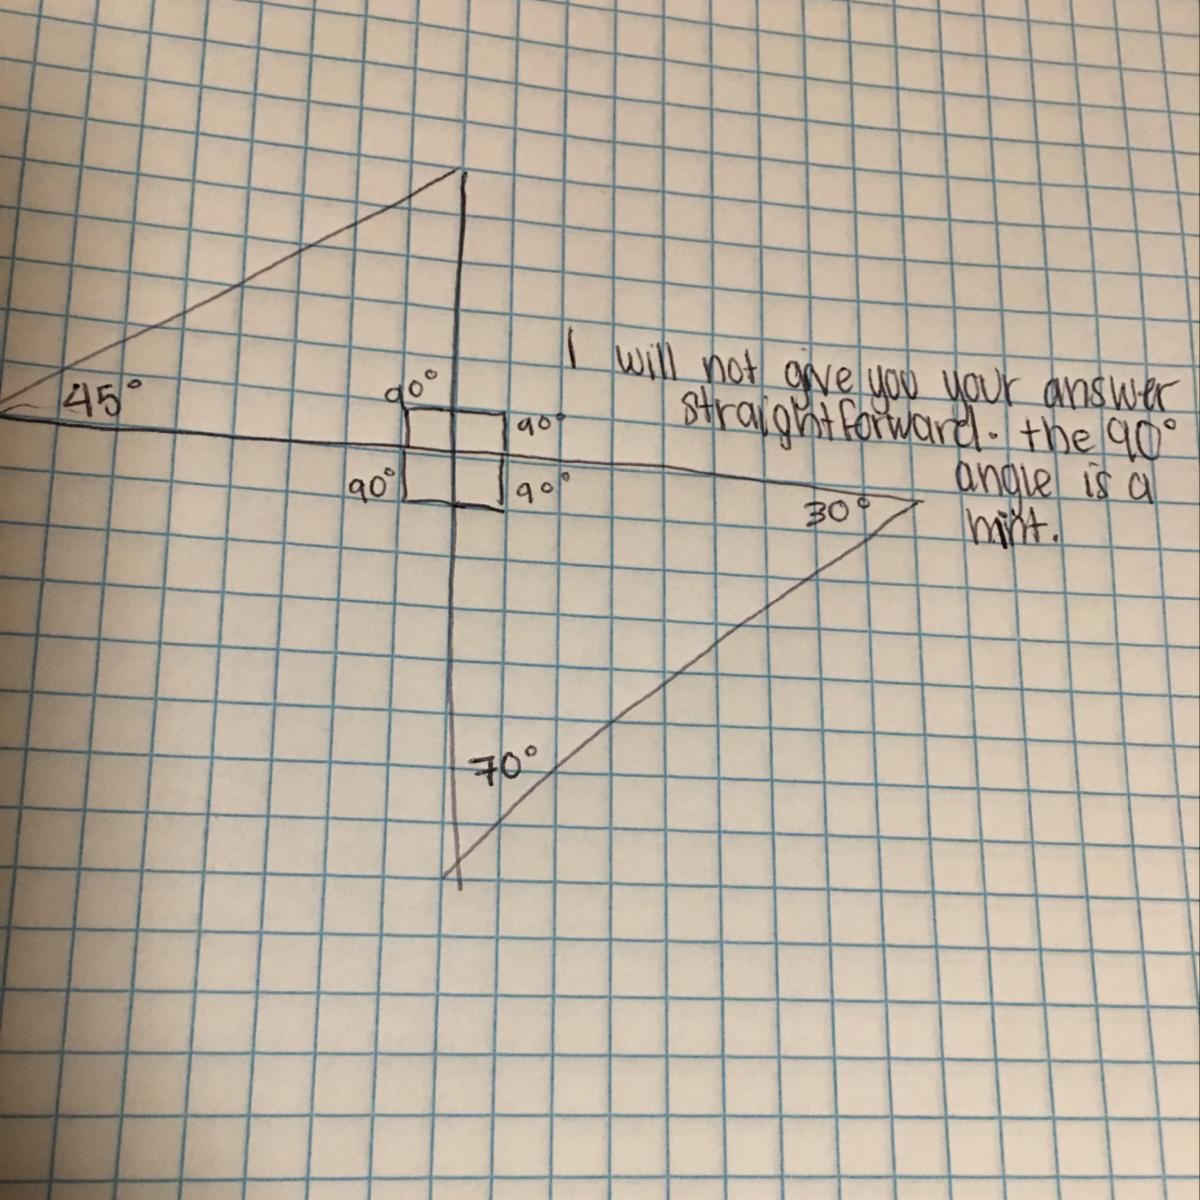 I will not give you your answer
straightforward. the 90°
angle is a
hint.
45°
90°
90°
90°
90°
30°
70°